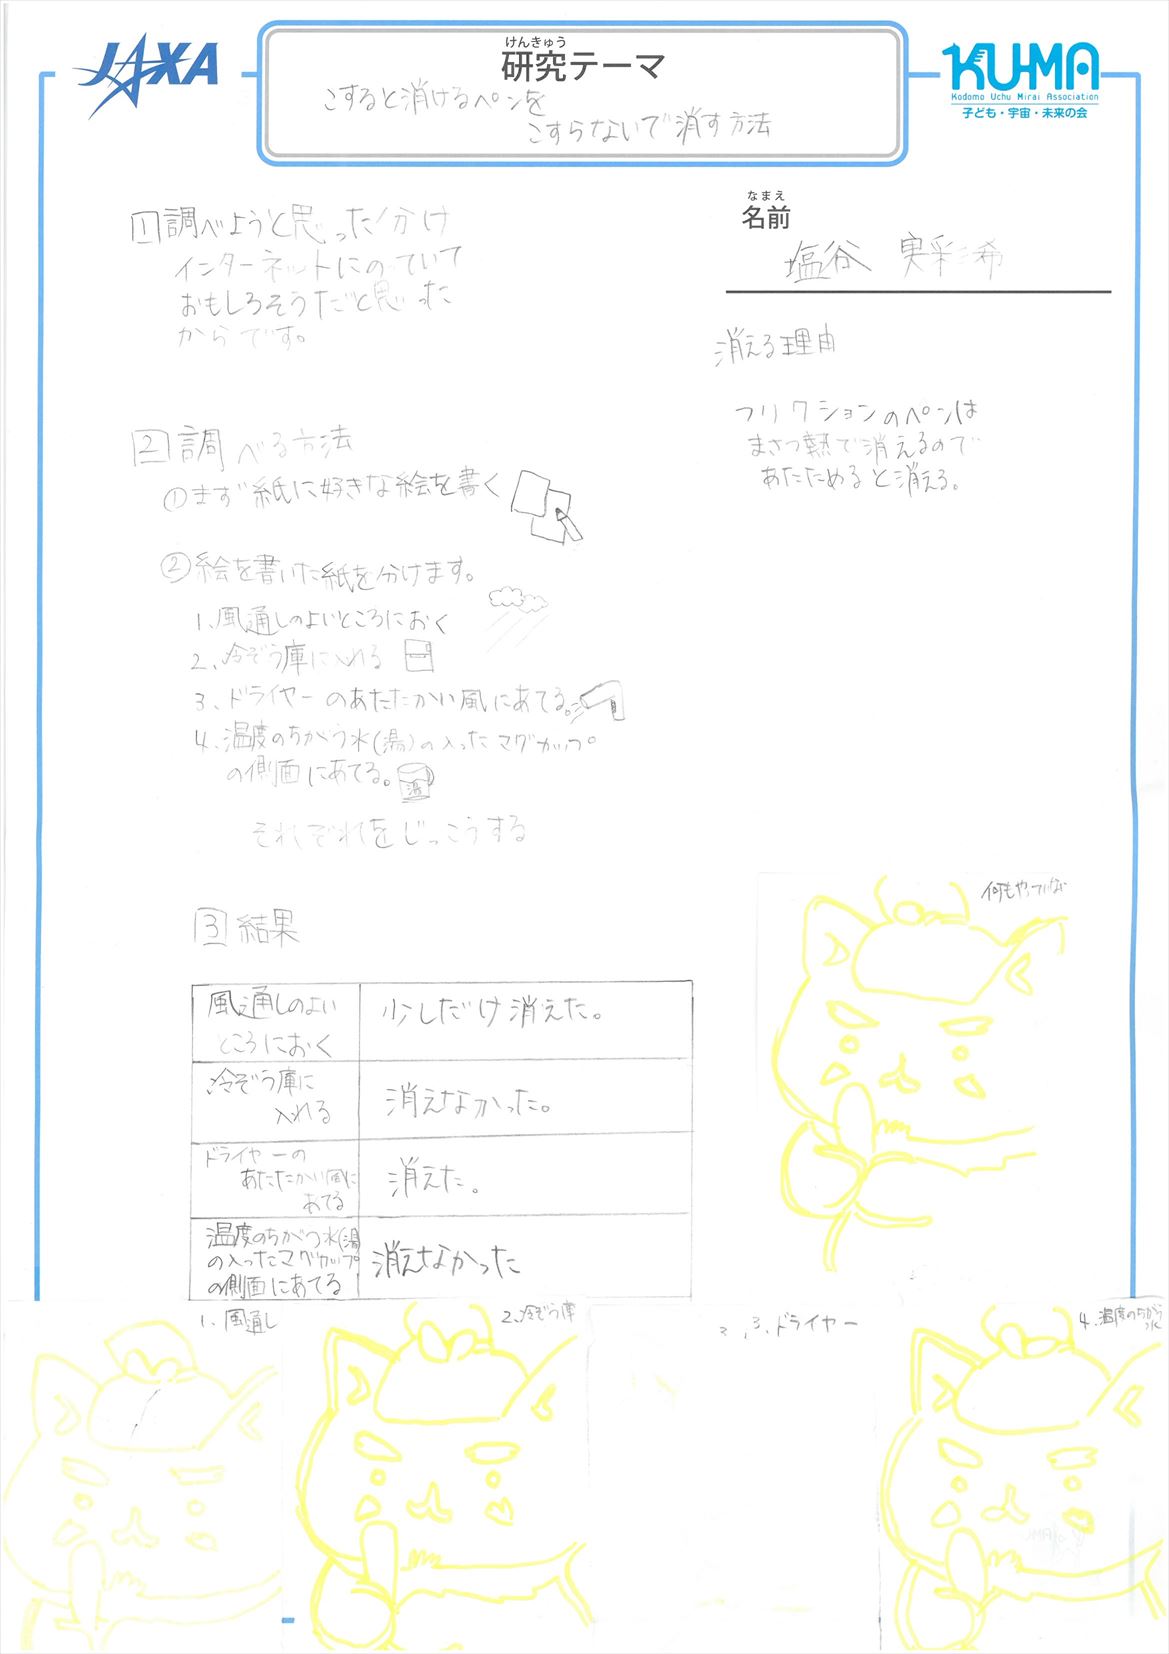 JAXA
けんきゅう
研究テーマ
こすると消けるペンを
こすらないで消す方法
KU-MA
Kodomo Uchu Mirai Association
子ども・宇宙・未来の会
なまえ
名前
塩谷 実彩希
1 調べようと思った分け
インターネットにのていて
おもしろそうだと思った
からです。
消える理由
フリクションのペンは
まさつ熱で消えるので
あたためると消える。
2 調べる方法
①まず紙に好きな絵を書く
②絵を書いた紙を分けます。
1、風通しのよいところにおく
2、冷ぞう庫に入れる
3、ドライヤーのあたたかい風にあてる。
4、温度のちがう水(湯)の入ったマグカップ
の側面にあてる。
湯
それぞれをじっこうする
3 結果
風通しのよい
ところにおく
少しだけ消えた。
冷ぞう庫に
入れる
消えなかった。
ドライヤーの
あたたかい風に
あてる
消えた。
温度のちがう水(湯)
の入ったマグカップ
の側面にあてる
消えなかった
何もやっていない
1、風通し
2、冷ぞう庫
3、ドライヤー
4、温度のちがう
水